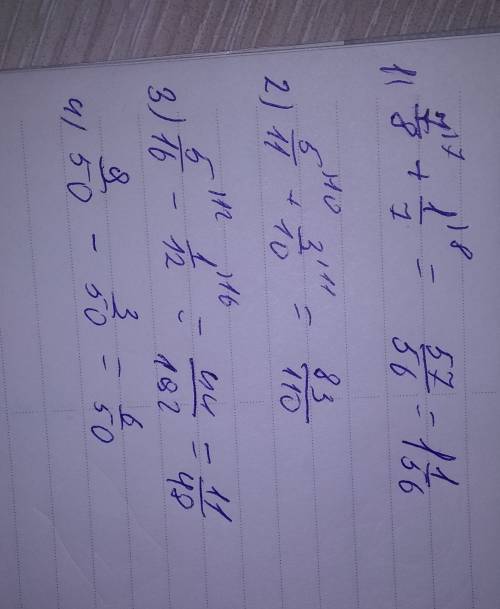 1) 7/8⁾⁷ + 1/7⁾⁸ = 57/56 = 1 1/56
2) 5/11⁾¹⁰ + 3/10⁾¹¹ = 83/110
3) 5/16⁾¹² - 1/12⁾¹⁶ = 44/192 = 11/48
4) 9/50 - 3/50 = 6/50